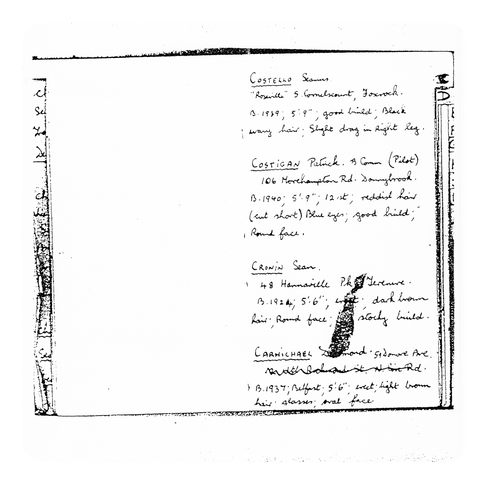 COSTELLO Seamus
"Roseville" 5 Cornelscourt, Foxrock.
B.1939; 5'9"; good build; Black
wavy hair; Slight drag in Right leg.
COSTIGAN Patrick. B Comm (Pilot)
106 Morehampton Rd. Donnybrook.
B.1940; 5'9"; 12 st; reddish hair
(cut short) Blue eyes; good build;
Round face.
CRONIN Sean.
48 Hannaville Pk. Terenure.
B.1924; 5'6"; erect; dark brown
hair; Round face; stocky build.
CARMICHAEL Ave.
Rd.
B.1937; Belfast; 5'6"; erect; light brown
hair glasses; oval face